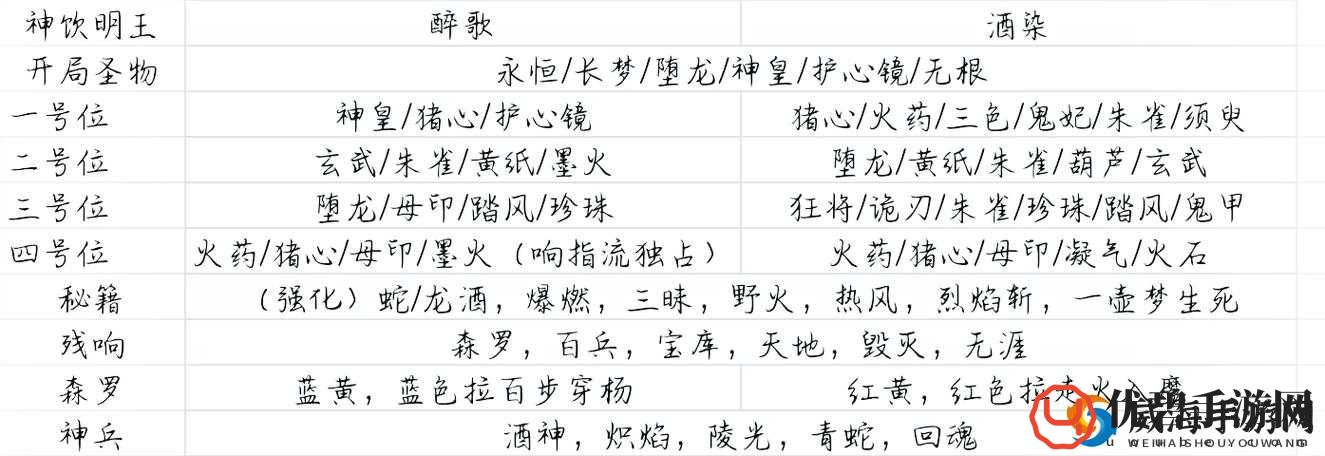 神饮明王 醉歌 酒染
开局圣物 永恒/长梦/堕龙/神皇/护心镜/无根
一号位 神皇/猪心/护心镜 猪心/火药/三色/鬼妃/朱雀/须臾
二号位 玄武/朱雀/黄纸/墨火 堕龙/黄纸/朱雀/葫芦/玄武
三号位 堕龙/母印/踏风/珍珠 狂将/诡刃/朱雀/珍珠/踏风/鬼甲
四号位 火药/猪心/母印/墨火（响指流独占） 火药/猪心/母印/凝气/火石
秘籍 （强化）蛇/龙酒，爆燃，三昧，野火，热风，烈焰斩，一壶梦生死
残响 森罗，百兵，宝库，天地，毁灭，无涯
森罗 蓝黄，蓝色拉百步穿杨 红黄，红色拉走火入魔
神兵 酒神，炽焰，陵光，青蛇，回魂
手游网
WEIHAISHOUYOUWANG